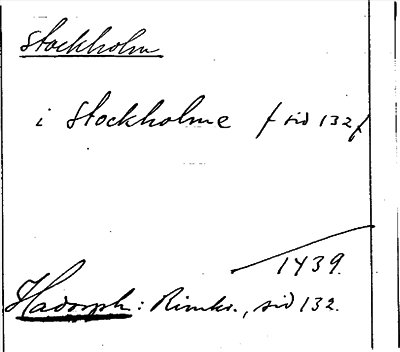 Stockholm
i Stockholme (sid 132)
1439.
Hadorph: Rimkr., sid 132.